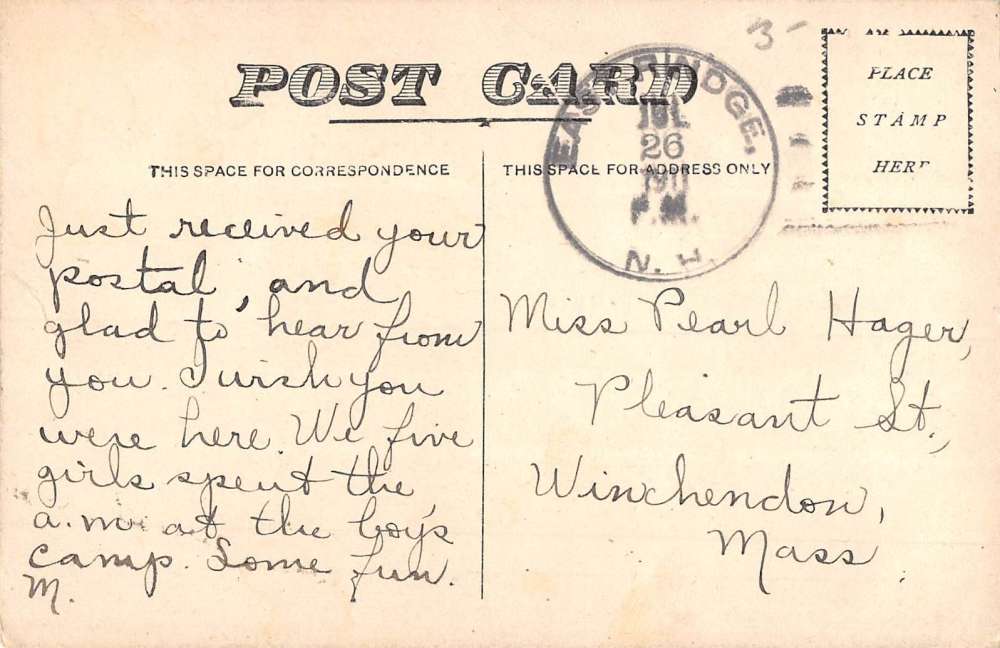 3-
POST CARD
EAST RINDGE,
JUL
26
1911
P.M.
N.H.
PLACE
STAMP
HERE
THIS SPACE FOR CORRESPONDENCE
THIS SPACE FOR ADDRESS ONLY
Just received your
postal, and
glad to hear from
you. I wish you
were here. We five
girls spent the
a.m. at the boy's
camp. Some fun.
M.
Miss Pearl Hager,
Pleasant St.,
Winchendon,
Mass.